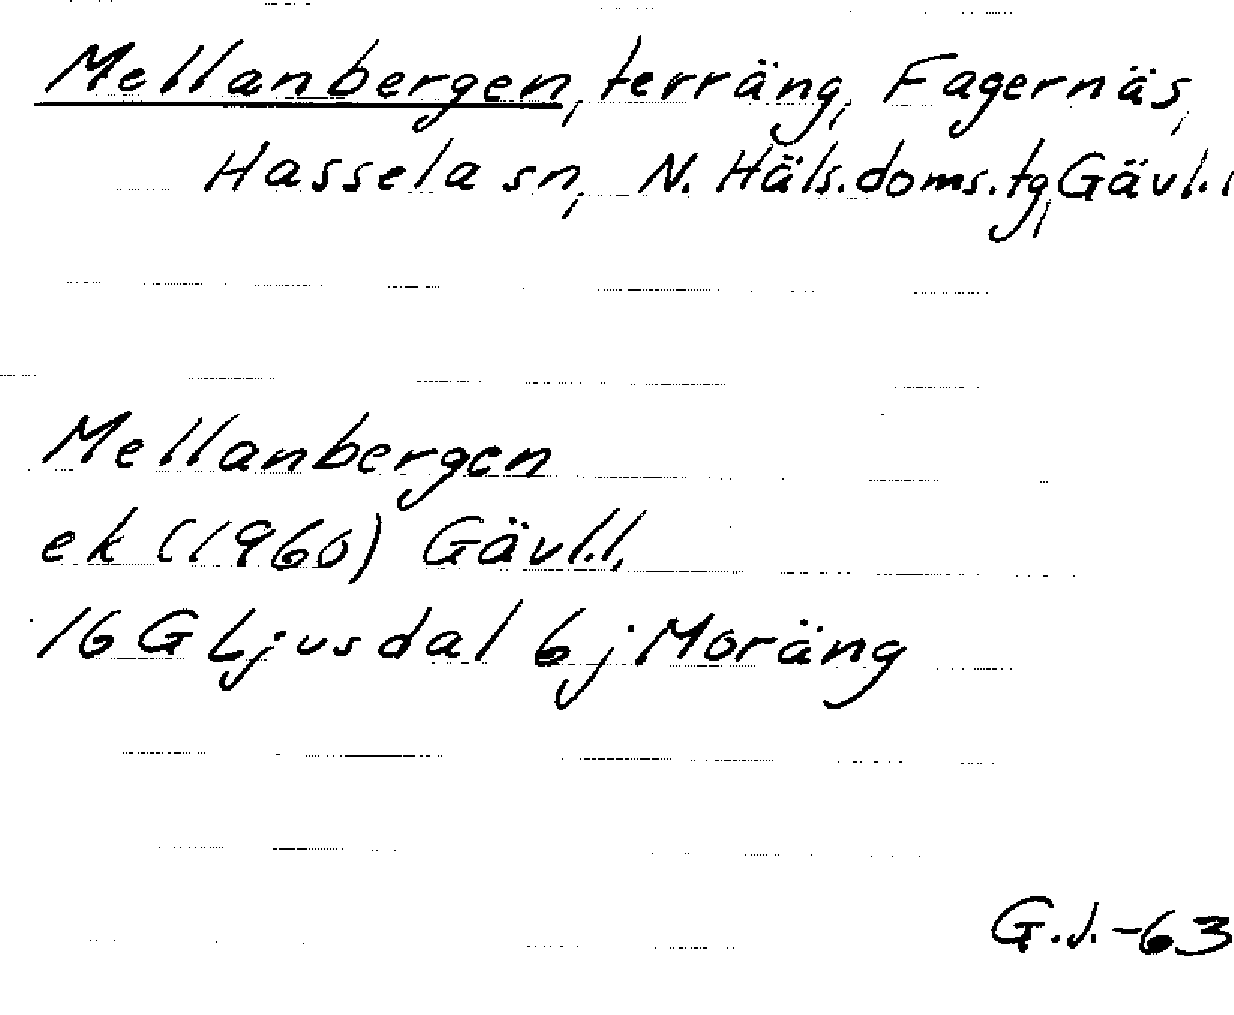 Mellanbergen, terräng, Fagernäs,
Hassela sn, N. Häls.doms.tg, Gävl. l
Mellanbergen
ek (1960) Gävl.l.
16 G Ljusdal 6 j Moräng
G.J.-63